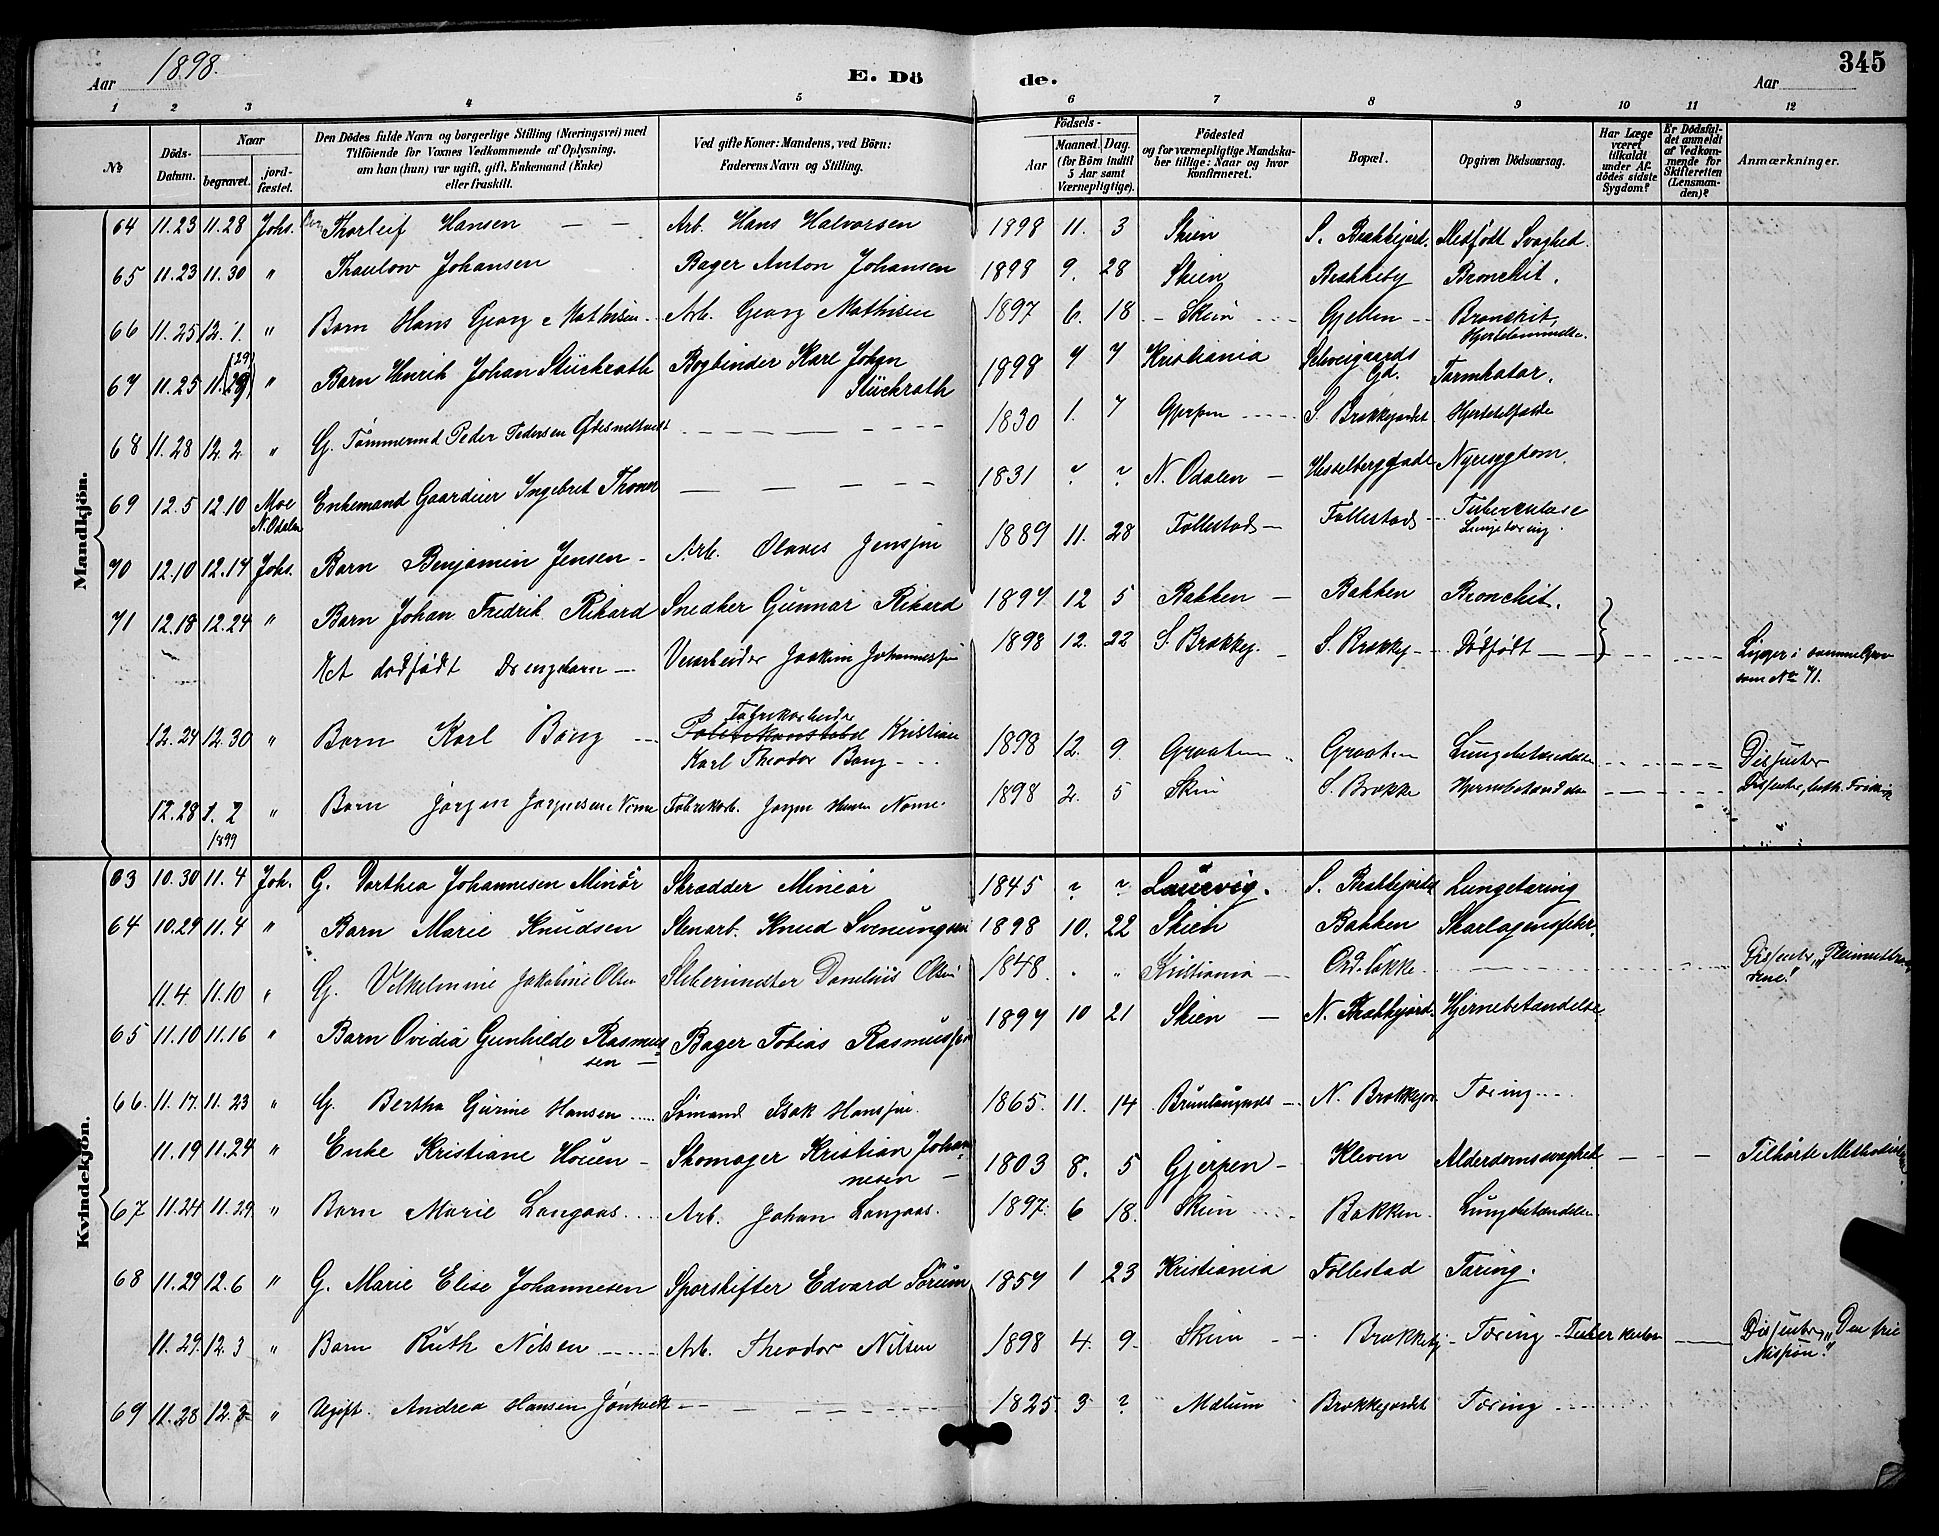 Aar 1898.
E. Dö de.
Aar
345
1 2 3 4 5 6 7 8 9 10 11 12
№
Döds-Datum.
Naar
begravet.
jord-fæstet.
Den Dödes fulde Navn og borgerlige Stilling (Næringsvei) med
Tilföiende for Voxnes Vedkommende af Oplysning,
om han (hun) var ugift, gift, Enkemand (Enke)
eller fraskilt.
Ved gifte Koner: Mandens, ved Börn:
Faderens Navn og Stilling.
Födsels-
Aar
Maaned. Dag.
(for Börn indtil
5 Aar samt
Værnepligtige).
Födested
og for værnepligtige Mandska-
ber tillige: Naar og hvor
konfirmeret.
Bopæl.
Opgiven Dödsaarsag.
Har Læge
været
tilkaldt
under Af-
dödes sidste
Sygdom?
Er Dödsfal-
det anmeldt
af Vedkom-
mende for
Skifteretten
(Lensman-
den)?
Anmærkninger.
Mandkjön.
64 11.23 11.28 Johs. Thorleif Hansen — — Arb. Hans Halvorsen 1898 11. 3 Skien S. Brækkejord. Medfödt Svaghed.
65 11.23 11.30 " Thaulow Johansen Bager Anton Johansen 1898 9. 28 Skien Brækkeby Bronchit.
66 11.25 12.1. " Barn Hans Georg Mathisen Arb. Georg Mathisen 1897 6. 18 Skien Gjellen Bronskit,
Hjertelammelse.
67 11.25 11.29 (29) " Barn Henrik Johan Stückrath Bogbinder Karl Johan
Stückrath 1898 7 7 Kristiania Schweigaards
Gd. Tarmkatar.
68 11.28 12.2 " G. Tömmermd Peder Pedersen 1830 1. 7 Gjerpen S. Brækkejordet Hjertelfeide
69 12.5 12.10 Moe
N. Odalen Enkemand Gaardeier Ingebret Thoner — — — 1831 ? ? N. Odalen Hesselberggade Nyresygdom.
70 12.10 12.14 Johs. Barn Benjamin Jensen Arb. Olaves Jensen 1889 11. 28 Follestad Follestad Tuberculose
Lungetæring.
71 12.18 12.24 " Barn Johan Fredrik Rikard Snedker Gunnar Rikard 1897 12 5 Bakken Bakken Bronchit.
Et dødfødt Drengebarn Veiarbeider Joakim Johannessen 1898 12. 22 S. Brækkej. S. Brækkej. Dödfödt Ligger i samme Grav
som No 71.
12.24 12.30 " Barn Karl Bang Fabrikarbeider
Politikonstabel Kristian
Karl Theodor Bang 1898 12. 9 Graaten Graaten Lungebetændelse Dissenter
12.28 1.2
1899 " Barn Jørgen Jørgensen Fabrikarb. Jørgen Hansen Nome. 1898 2. 5 Skien S. Brække Hjernebetændelse Dissenter, luth. Frikirke
Kvindekjön.
63 10.30 11.4 Joh. G. Dorthea Johannesen Minör Skrædder Mineör 1845 ? ? Laurvig. S. Brækkejordet Lungetæring
64 10.29 11.4 " Barn Marie Knudsen Stenarb. Knud Svenungsen 1898 10. 22 Skien Bakken Skarlagensfeber.
11.4 11.10 " G. Vilhelmine Jakobine Olsen Slibermester Olsen 1848 " " Kristiania Ord. løkke Dissenter,
65 11.10 11.16 " Barn Ovidia Gunhilde Rasmus-
sen Bager Tobias Rasmussen 1897 10 21 Skien N. Brækkejord. Hjernebetændelse
66. 11.17. 11.23 " G. Bertha Gurine Hansen Sömand Isak Hanssen. 1865. 11. 14 Brunlangnæs N. Brækkejor. Tæring
11.19 11.24 " Enke Kristiane Houen Skomager Kristian Johan-
nesen 1803 8. 5 Gjerpen Kleven Alderdomssvaghed Tilhörte Methodist
67 11.24 11.29 " Barn Marie Langaas Arb. Johan Langaas. 1897. 6 18. Skien Bakken Lungebetændelse
68 11.29 12.6 " G. Marie Elise Johannesen Sporskifter Edvard Sörum 1857 1 23 Kristiania Follestad Tæring.
11.29. 12.3 " Barn Ruth Nilsen Arb. Theodor Nilsen 1898 4. 9 Skien Brækkeby Tæring Tuberkulos Dissenter, "Den frie
Mission."
69 11.28 12.2 " Ugift. Andrea Hansen 1825 3 ? Mælum Brækkejordet Tæring